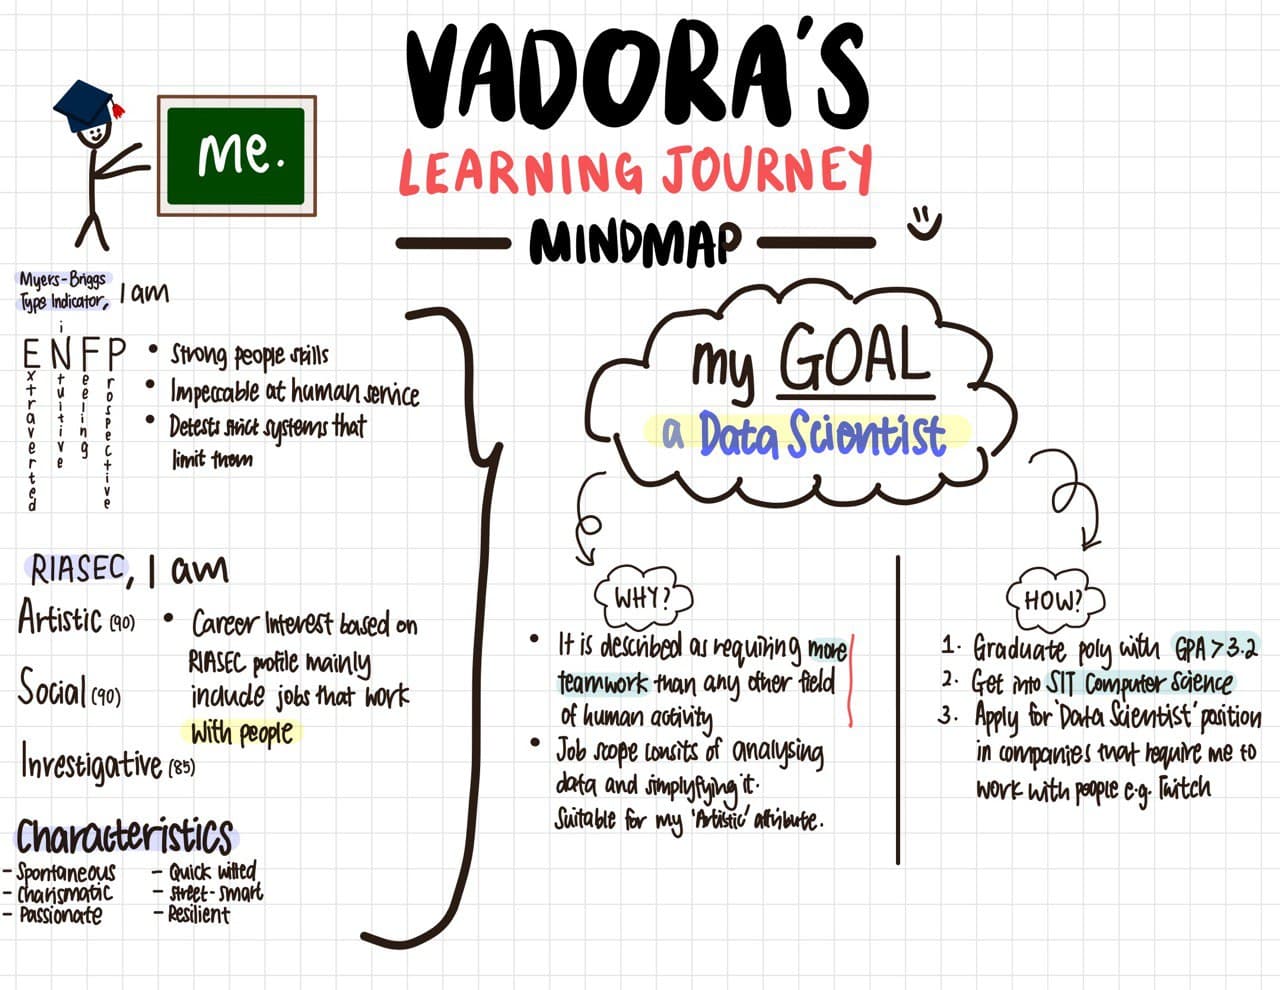 VADORA'S
LEARNING JOURNEY
MINDMAP
me.
Myers-Briggs
Type Indicator, I am
ENFP
Extraverted
iNtuitive
Feeling
Prospective
• Strong people skills
• Impeccable at human service
• Detests strict systems that
limit them
RIASEC, I am
Artistic (90)
Social (90)
Investigative (85)
• Career Interest based on
RIASEC profile mainly
include jobs that work
with people
Characteristics
- Spontaneous
- Charismatic
- Passionate
- Quick witted
- Street-smart
- Resilient
my GOAL
a Data Scientist
WHY?
• It is described as requiring more
teamwork than any other field
of human activity
• Job scope consits of analysing
data and simplyfying it.
Suitable for my 'Artistic' attribute.
HOW?
1. Graduate poly with GPA > 3.2
2. Get into SIT Computer Science
3. Apply for 'Data Scientist' position
in companies that require me to
work with people e.g. Twitch